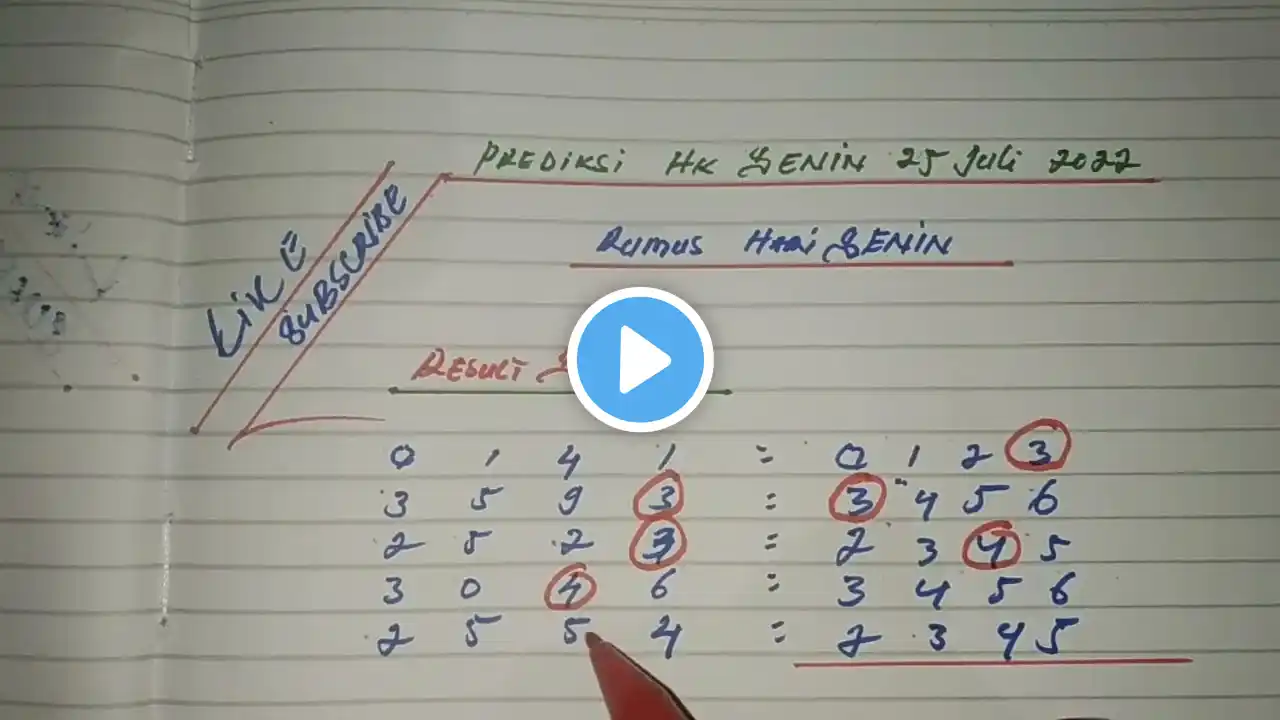 PREDIKSI HK SENIN 25 Juli 2022
LIKE &
SUBSCRIBE
Rumus HARI SENIN
RESULT
0 1 4 1 = 0 1 2 3
3 5 9 3 = 3 4 5 6
2 5 2 3 = 2 3 4 5
3 0 4 6 = 3 4 5 6
2 5 5 4 = 2 3 4 5